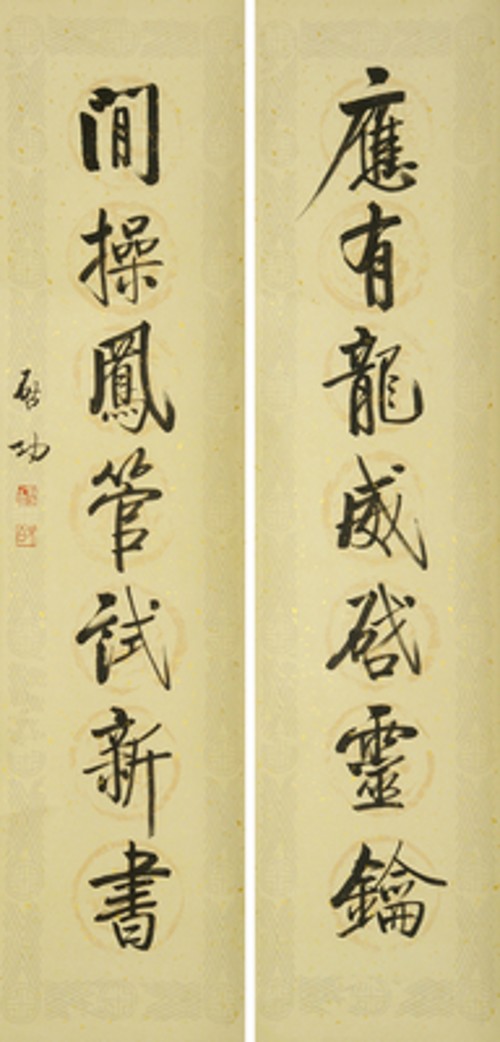 應有龍威啓靈鑰
閒操鳳管試新書
啓功